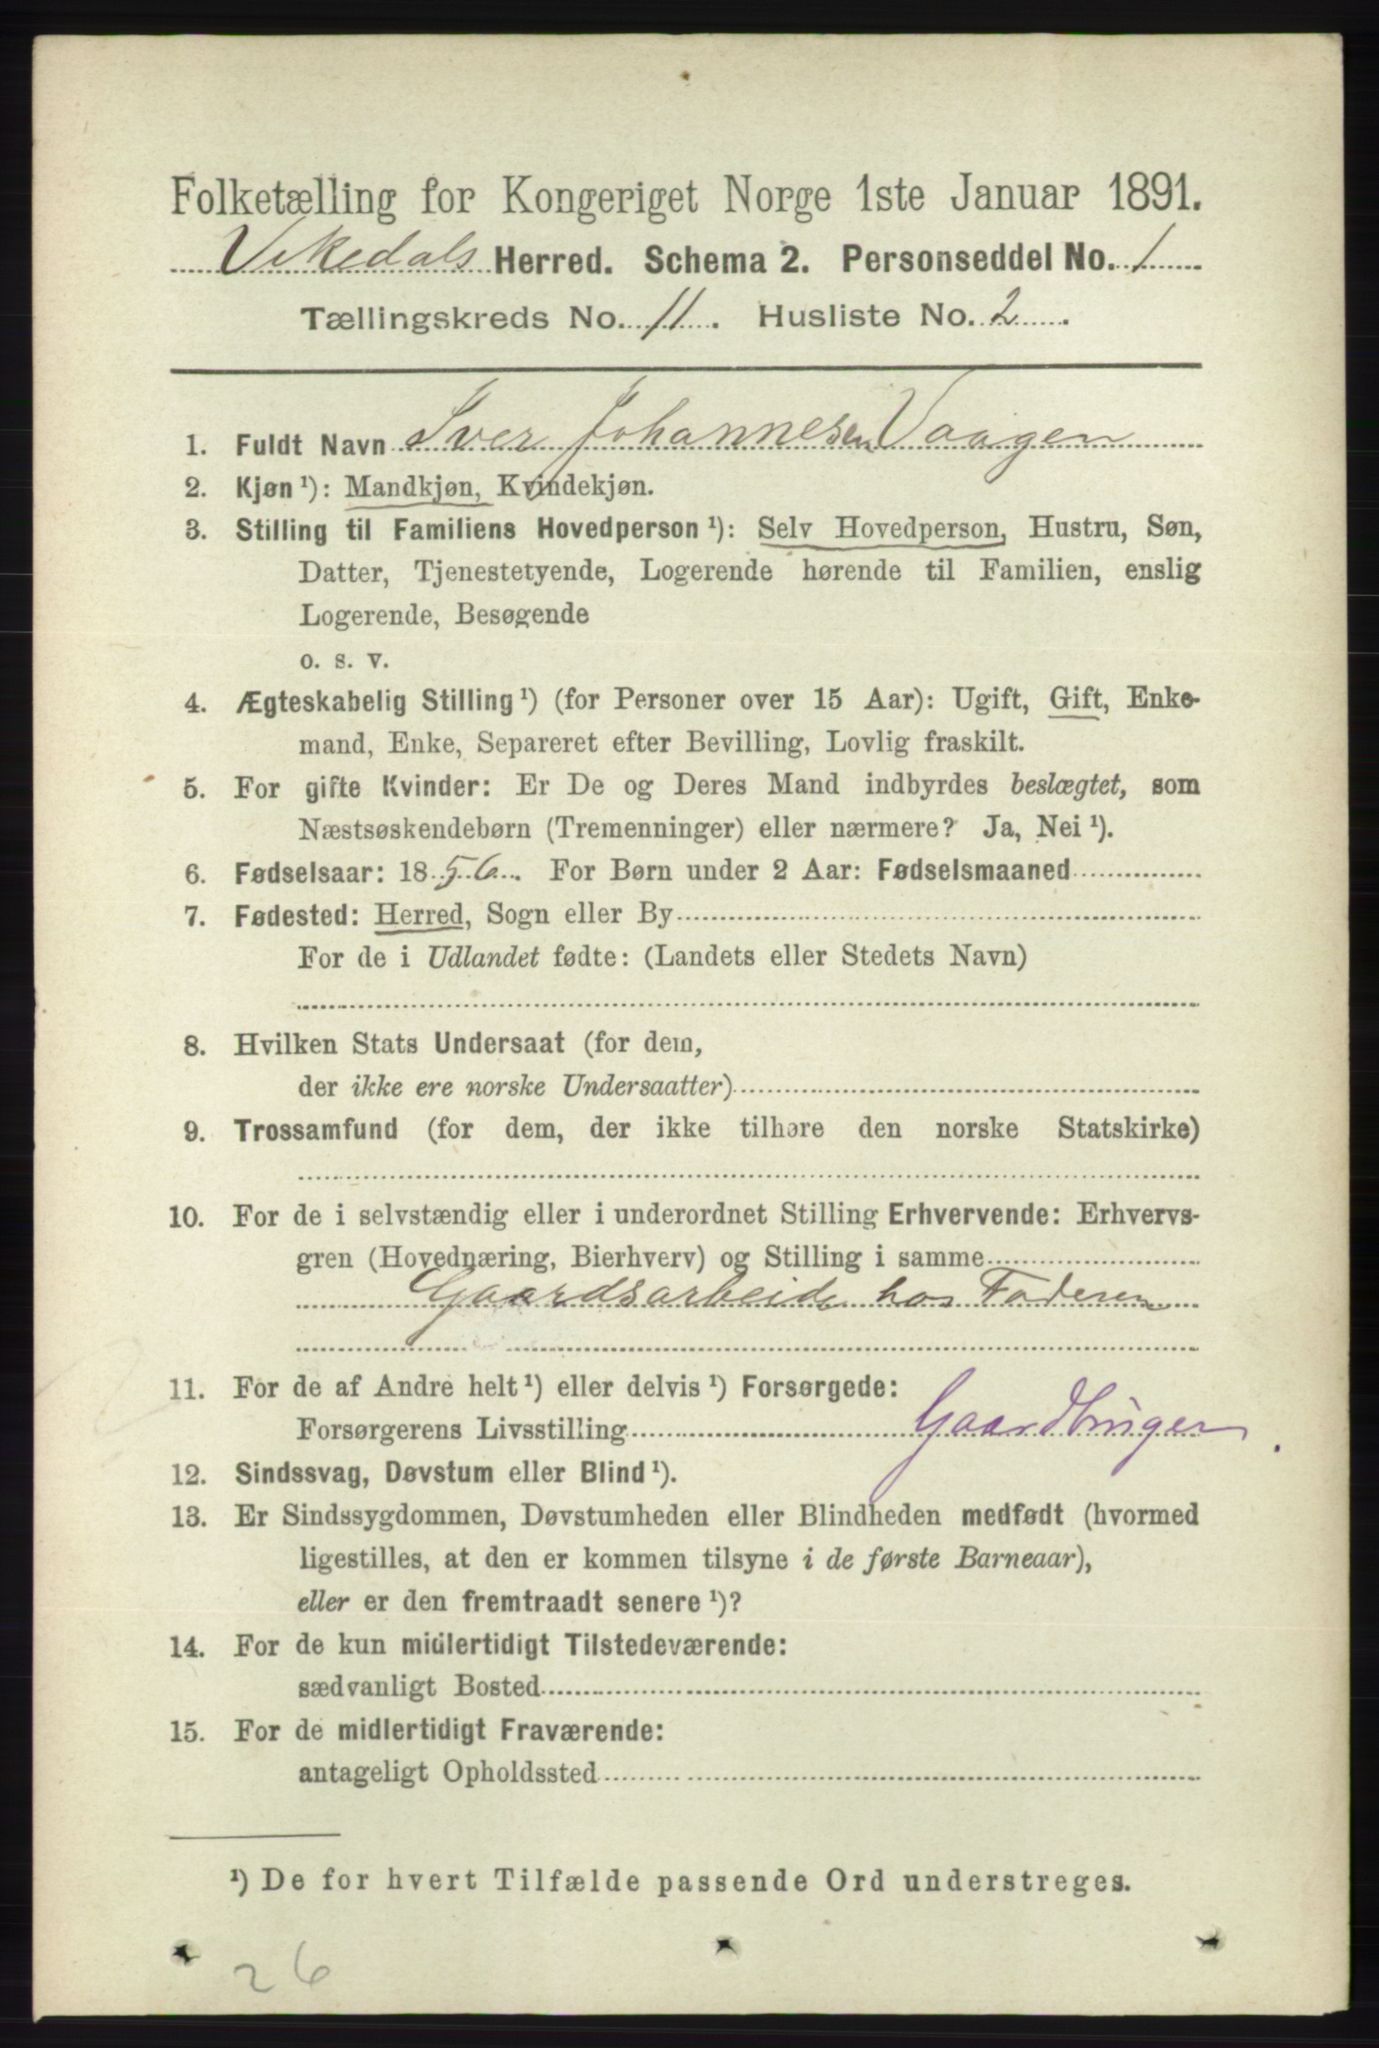 Folketælling for Kongeriget Norge 1ste Januar 1891.
Vikedals Herred. Schema 2. Personseddel No. 1
Tællingskreds No. 11. Husliste No. 2.
1. Fuldt Navn Iver Johannesen Vaagen
2. Kjøn ¹): Mandkjøn, Kvindekjøn.
3. Stilling til Familiens Hovedperson ¹): Selv Hovedperson, Hustru, Søn,
Datter, Tjenestetyende, Logerende hørende til Familien, enslig
Logerende, Besøgende
o. s. v.
4. Ægteskabelig Stilling ¹) (for Personer over 15 Aar): Ugift, Gift, Enke-
mand, Enke, Separeret efter Bevilling, Lovlig fraskilt.
5. For gifte Kvinder: Er De og Deres Mand indbyrdes beslægtet, som
Næstsøskendebørn (Tremenninger) eller nærmere? Ja, Nei ¹).
6. Fødselsaar: 1856. For Børn under 2 Aar: Fødselsmaaned
7. Fødested: Herred, Sogn eller By
For de i Udlandet fødte: (Landets eller Stedets Navn)
8. Hvilken Stats Undersaat (for dem,
der ikke ere norske Undersaatter)
9. Trossamfund (for dem, der ikke tilhøre den norske Statskirke)
10. For de i selvstændig eller i underordnet Stilling Erhvervende: Erhvervs-
gren (Hovednæring, Bierhverv) og Stilling i samme
Gaardsarbeide hos Faderen
11. For de af Andre helt ¹) eller delvis ¹) Forsørgede:
Forsørgerens Livsstilling Gaardbruger.
12. Sindssvag, Døvstum eller Blind ¹).
13. Er Sindssygdommen, Døvstumheden eller Blindheden medfødt (hvormed
ligestilles, at den er kommen tilsyne i de første Barneaar),
eller er den fremtraadt senere ¹)?
14. For de kun midlertidigt Tilstedeværende:
sædvanligt Bosted
15. For de midlertidigt Fraværende:
antageligt Opholdssted
¹) De for hvert Tilfælde passende Ord understreges.
26